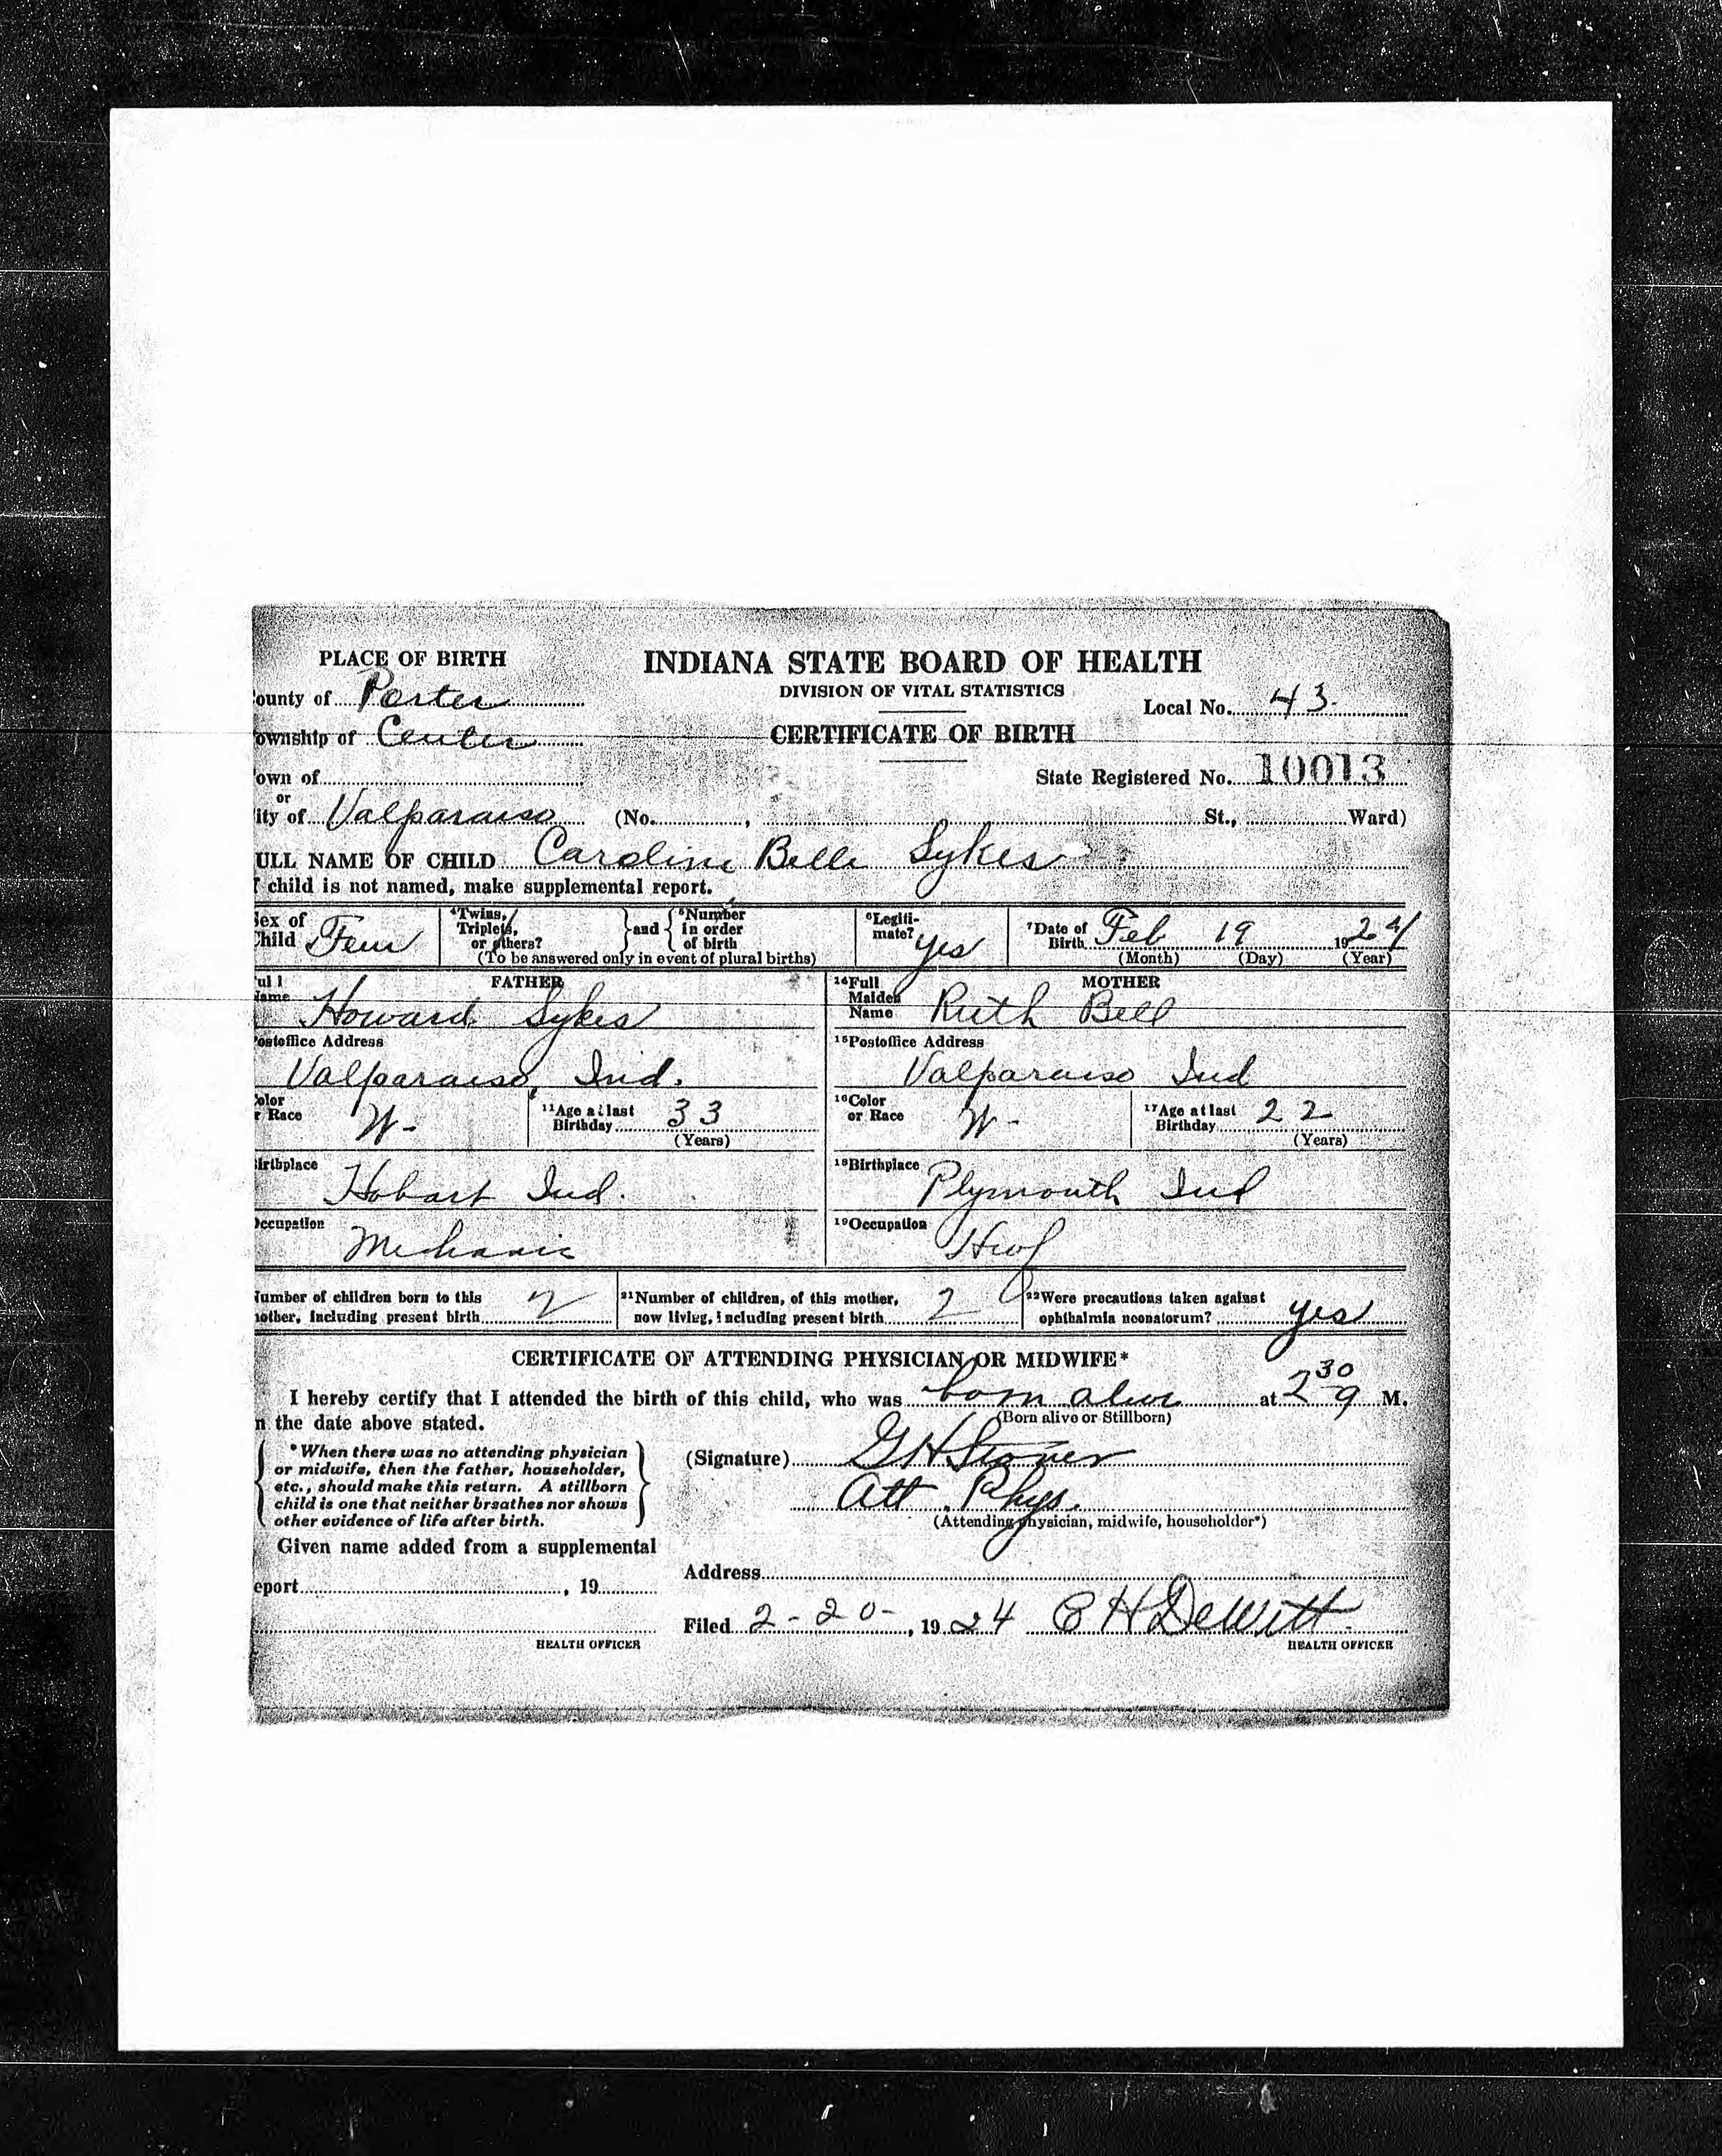 PLACE OF BIRTH
INDIANA STATE BOARD OF HEALTH
ounty of Porter
DIVISION OF VITAL STATISTICS
Local No. 43.
ownship of Center
CERTIFICATE OF BIRTH
own of
State Registered No. 10013
or
ity of Valparaiso (No. , St., Ward)
ULL NAME OF CHILD Caroline Belle Sykes
f child is not named, make supplemental report.
Sex of Child Fem
4Twins, Triplets, or others? } and { 5Number in order of birth
(To be answered only in event of plural births)
6Legiti-mate? yes
7Date of Birth Feb 19 1924
(Month) (Day) (Year)
ull Name FATHER
Howard Sykes
14Full Maiden Name MOTHER
Ruth Bell
ostoffice Address
Valparaiso, Ind.
15Postoffice Address
Valparaiso Ind
olor r Race W-
11Age at last Birthday 33
(Years)
16Color or Race W-
17Age at last Birthday 22
(Years)
irthplace
Hobart Ind.
18Birthplace
Plymouth Ind
Occupation
Mechanic
19Occupation
Hwf
Number of children born to this
mother, including present birth 2
21Number of children, of this mother,
now living, including present birth 2
22Were precautions taken against
ophthalmia neonatorum? yes
CERTIFICATE OF ATTENDING PHYSICIAN OR MIDWIFE*
I hereby certify that I attended the birth of this child, who was born alive at 2 30 a M.
(Born alive or Stillborn)
n the date above stated.
*When there was no attending physician
or midwife, then the father, householder,
etc., should make this return. A stillborn
child is one that neither breathes nor shows
other evidence of life after birth.
(Signature) G H Stoner
Att. Phys.
(Attending physician, midwife, householder*)
Given name added from a supplemental
eport , 19
Address
Filed 2-20-, 1924 E H DeWitt
HEALTH OFFICER
HEALTH OFFICER